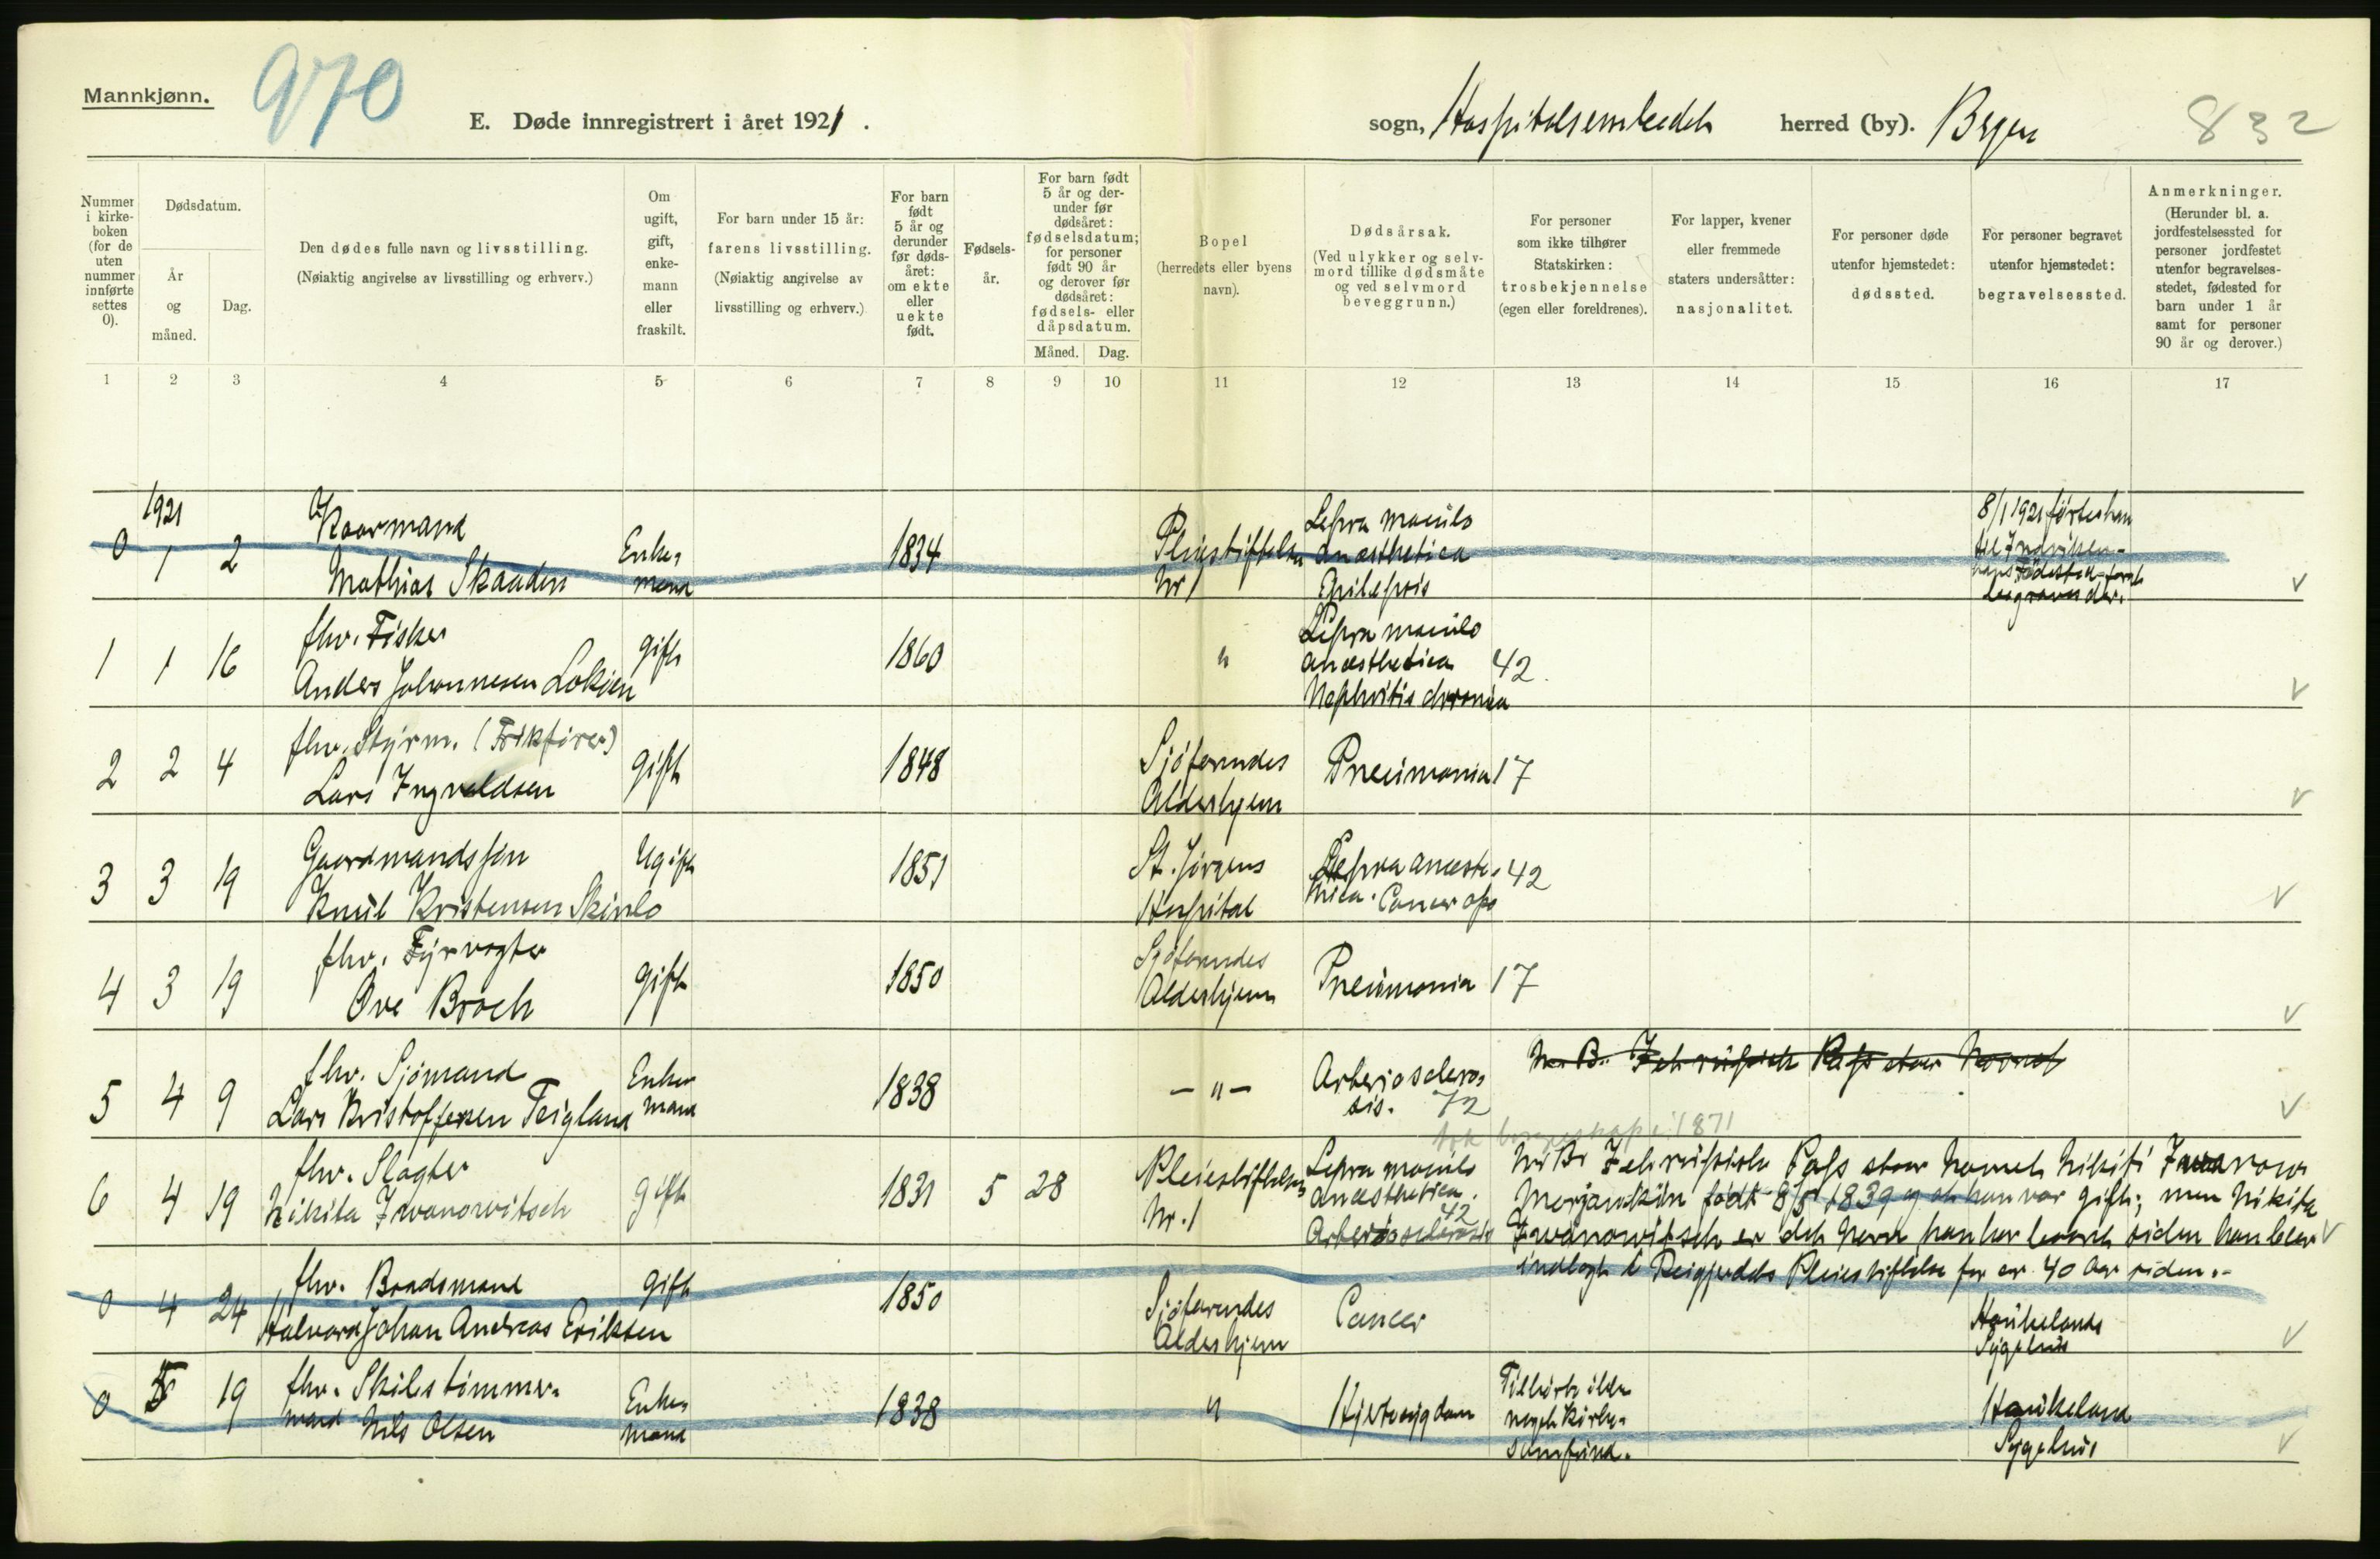 Mannkjønn.
970
E. Døde innregistrert i året 1921.
sogn, Hospitalsembedet herred (by). Bergen
832
Nummer i kirke-boken (for de uten nummer innførte settes 0).
Dødsdatum.
År og måned.
Dag.
Den dødes fulle navn og livsstilling.
(Nøiaktig angivelse av livsstilling og erhverv.)
Om ugift, gift, enke-mann eller fraskilt.
For barn under 15 år: farens livsstilling.
(Nøiaktig angivelse av livsstilling og erhverv.)
For barn født 5 år og derunder før døds-året: om ekte eller uekte født.
Fødsels-år.
For barn født 5 år og der-under før dødsåret: fødselsdatum; for personer født 90 år og derover før dødsåret: fødsels- eller dåpsdatum.
Måned. Dag.
Bopel
(herredets eller byens navn).
Dødsårsak.
(Ved ulykker og selv-mord tillike dødsmåte og ved selvmord beveggrunn.)
For personer som ikke tilhører Statskirken: trosbekjennelse
(egen eller foreldrenes).
For lapper, kvener eller fremmede staters undersåtter: nasjonalitet.
For personer døde utenfor hjemstedet: dødssted.
For personer begravet utenfor hjemstedet: begravelsessted.
Anmerkninger.
(Herunder bl. a. jordfestelsessted for personer jordfestet utenfor begravelses-stedet, fødested for barn under 1 år samt for personer 90 år og derover.)
1 2 3 4 5 6 7 8 9 10 11 12 13 14 15 16 17
1921
0 1 2
Mathias Skaaden
Enke-
mand
1834
Pleiestiftelsen
Nr 1
Lepra maculo
anæsthetica
Epilepsis
8/1 1921 førtes han
til Indviken-
hans Fødested for at
begraves der.
1 1 16
fhv. Fisker
Anders Johannesen Lokøen
gift
1860
"
Lepra maculo
anæsthetica 42
Nephritis chronica
2 2 4
fhv. Styrm.
Lars Ingvaldsen
gift
1848
Sjöfarendes
Alderhjem
Pneumonia 17
3 3 19
Gaardmandssøn
Knut Kristensen Skinlo
Ugift
1851
St. Jørgens
Hospital
Lepra anæst- 42
hica. Cancer
4 3 19
fhv. Fyrvogter
Ove Broch
gift
1850
Sjöfarendes
Alderhjem
Pneumonia 17
5 4 9
fhv. Sjömand
Lars Kristoffersen Teigland
Enke-
mand
1838
- " -
Arteriosclero-
sis. 72
N. B. I et russisk Pass staar Navnet
1871
6 4 19
fhv. Slagter
Nikita Iwanowitsch
gift
1831 5 28
Pleiestiftelsen
Nr. 1
Lepra maculo
anæsthetica. 42
Arteriosclerosis
N. B. I et russisk Pass staar Navnet Nikiti Iwanow
født 8/5 1839 og at han var gift; men Nikita
Iwanowitsch er det Navn han har baaret siden han blev
indlagt i Reigjerdets Pleiestiftelse for ca. 40 Aar siden.-
0 4 24
fhv. Baadsmand
Halvard Johan Andreas Eriksen
gift
1850
Sjöfarendes
Alderhjem
Cancer
Haukelands
Sygehus
0 5 19
fhv. Skibstömmer-
mand Nils Olsen
Enke-
mand
1838
"
Hjertesygdom
Tilhørte ikke
noget Kirke-
samfund.
Haukeland
Sygehus